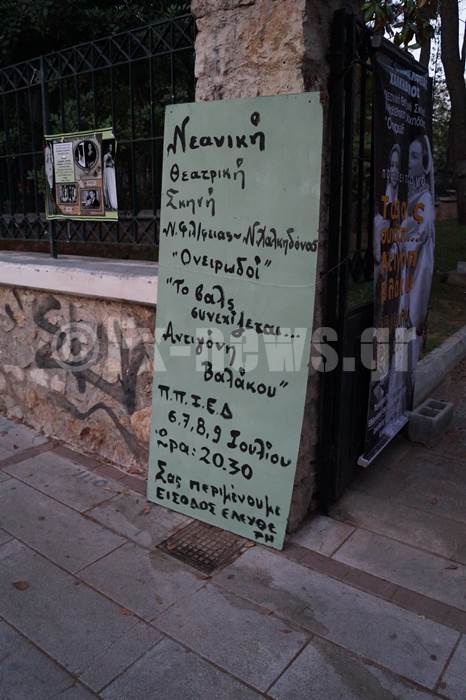 Νεανική
Θεατρική
Σκηνή
Ν. Φιλ/φειας ~ Ν. Χαλκηδόνας
"Ονειρωδοί"
"Το βαλς
συνεχίζεται...
Αντιγόνη
Βαλάκου"
Π.Π.Ι.Ε.Δ
6,7,8,9 Ιουλίου
ώρα: 20.30
Σας περιμένουμε
ΕΙΣΟΔΟΣ ΕΛΕΥΘΕ
ΡΗ
©fx-news.gr